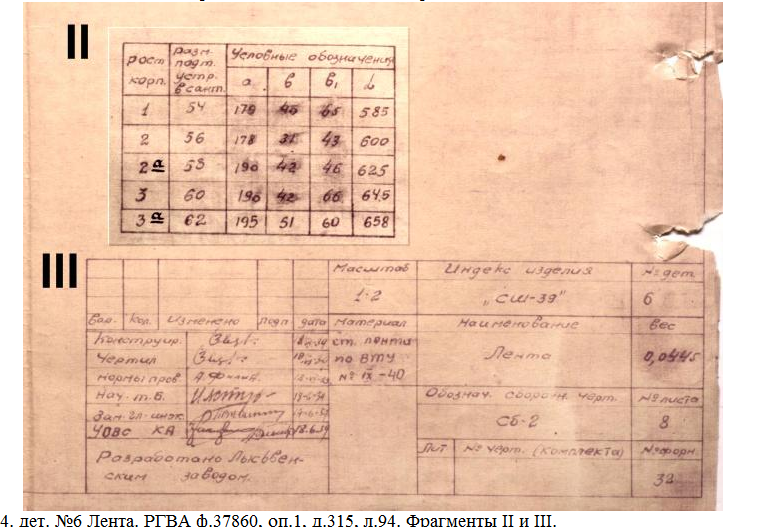 II
рост корп. разм. подт. устр. в сант. Условные обозначения
а в в₁ L
1 54 179 45 65 585
2 56 178 31 43 600
2а 190 42 46 625
3 60 196 42 66 645
3а 62 195 51 60 658
III
Масштаб Индекс изделия № дет.
1:2 „СШ-39" 6
Вар. Кол. Изменено подп дата Материал Наименование Вес
Конструир. ст. лента Лента 0,0445
Чертил по ВТУ
нормы пров № IX-40
Нач. т.б. Обознач. сборочн. черт. № листа
Зам. гл. инж. Сб-2 8
УОВС КА 18.6.39
Разработано Лысьвен- Лит № черт. (комплекта) № форм.
ским заводом. 32
4. дет. №6 Лента. РГВА ф.37860, оп.1, д.315, л.94. Фрагменты II и III.